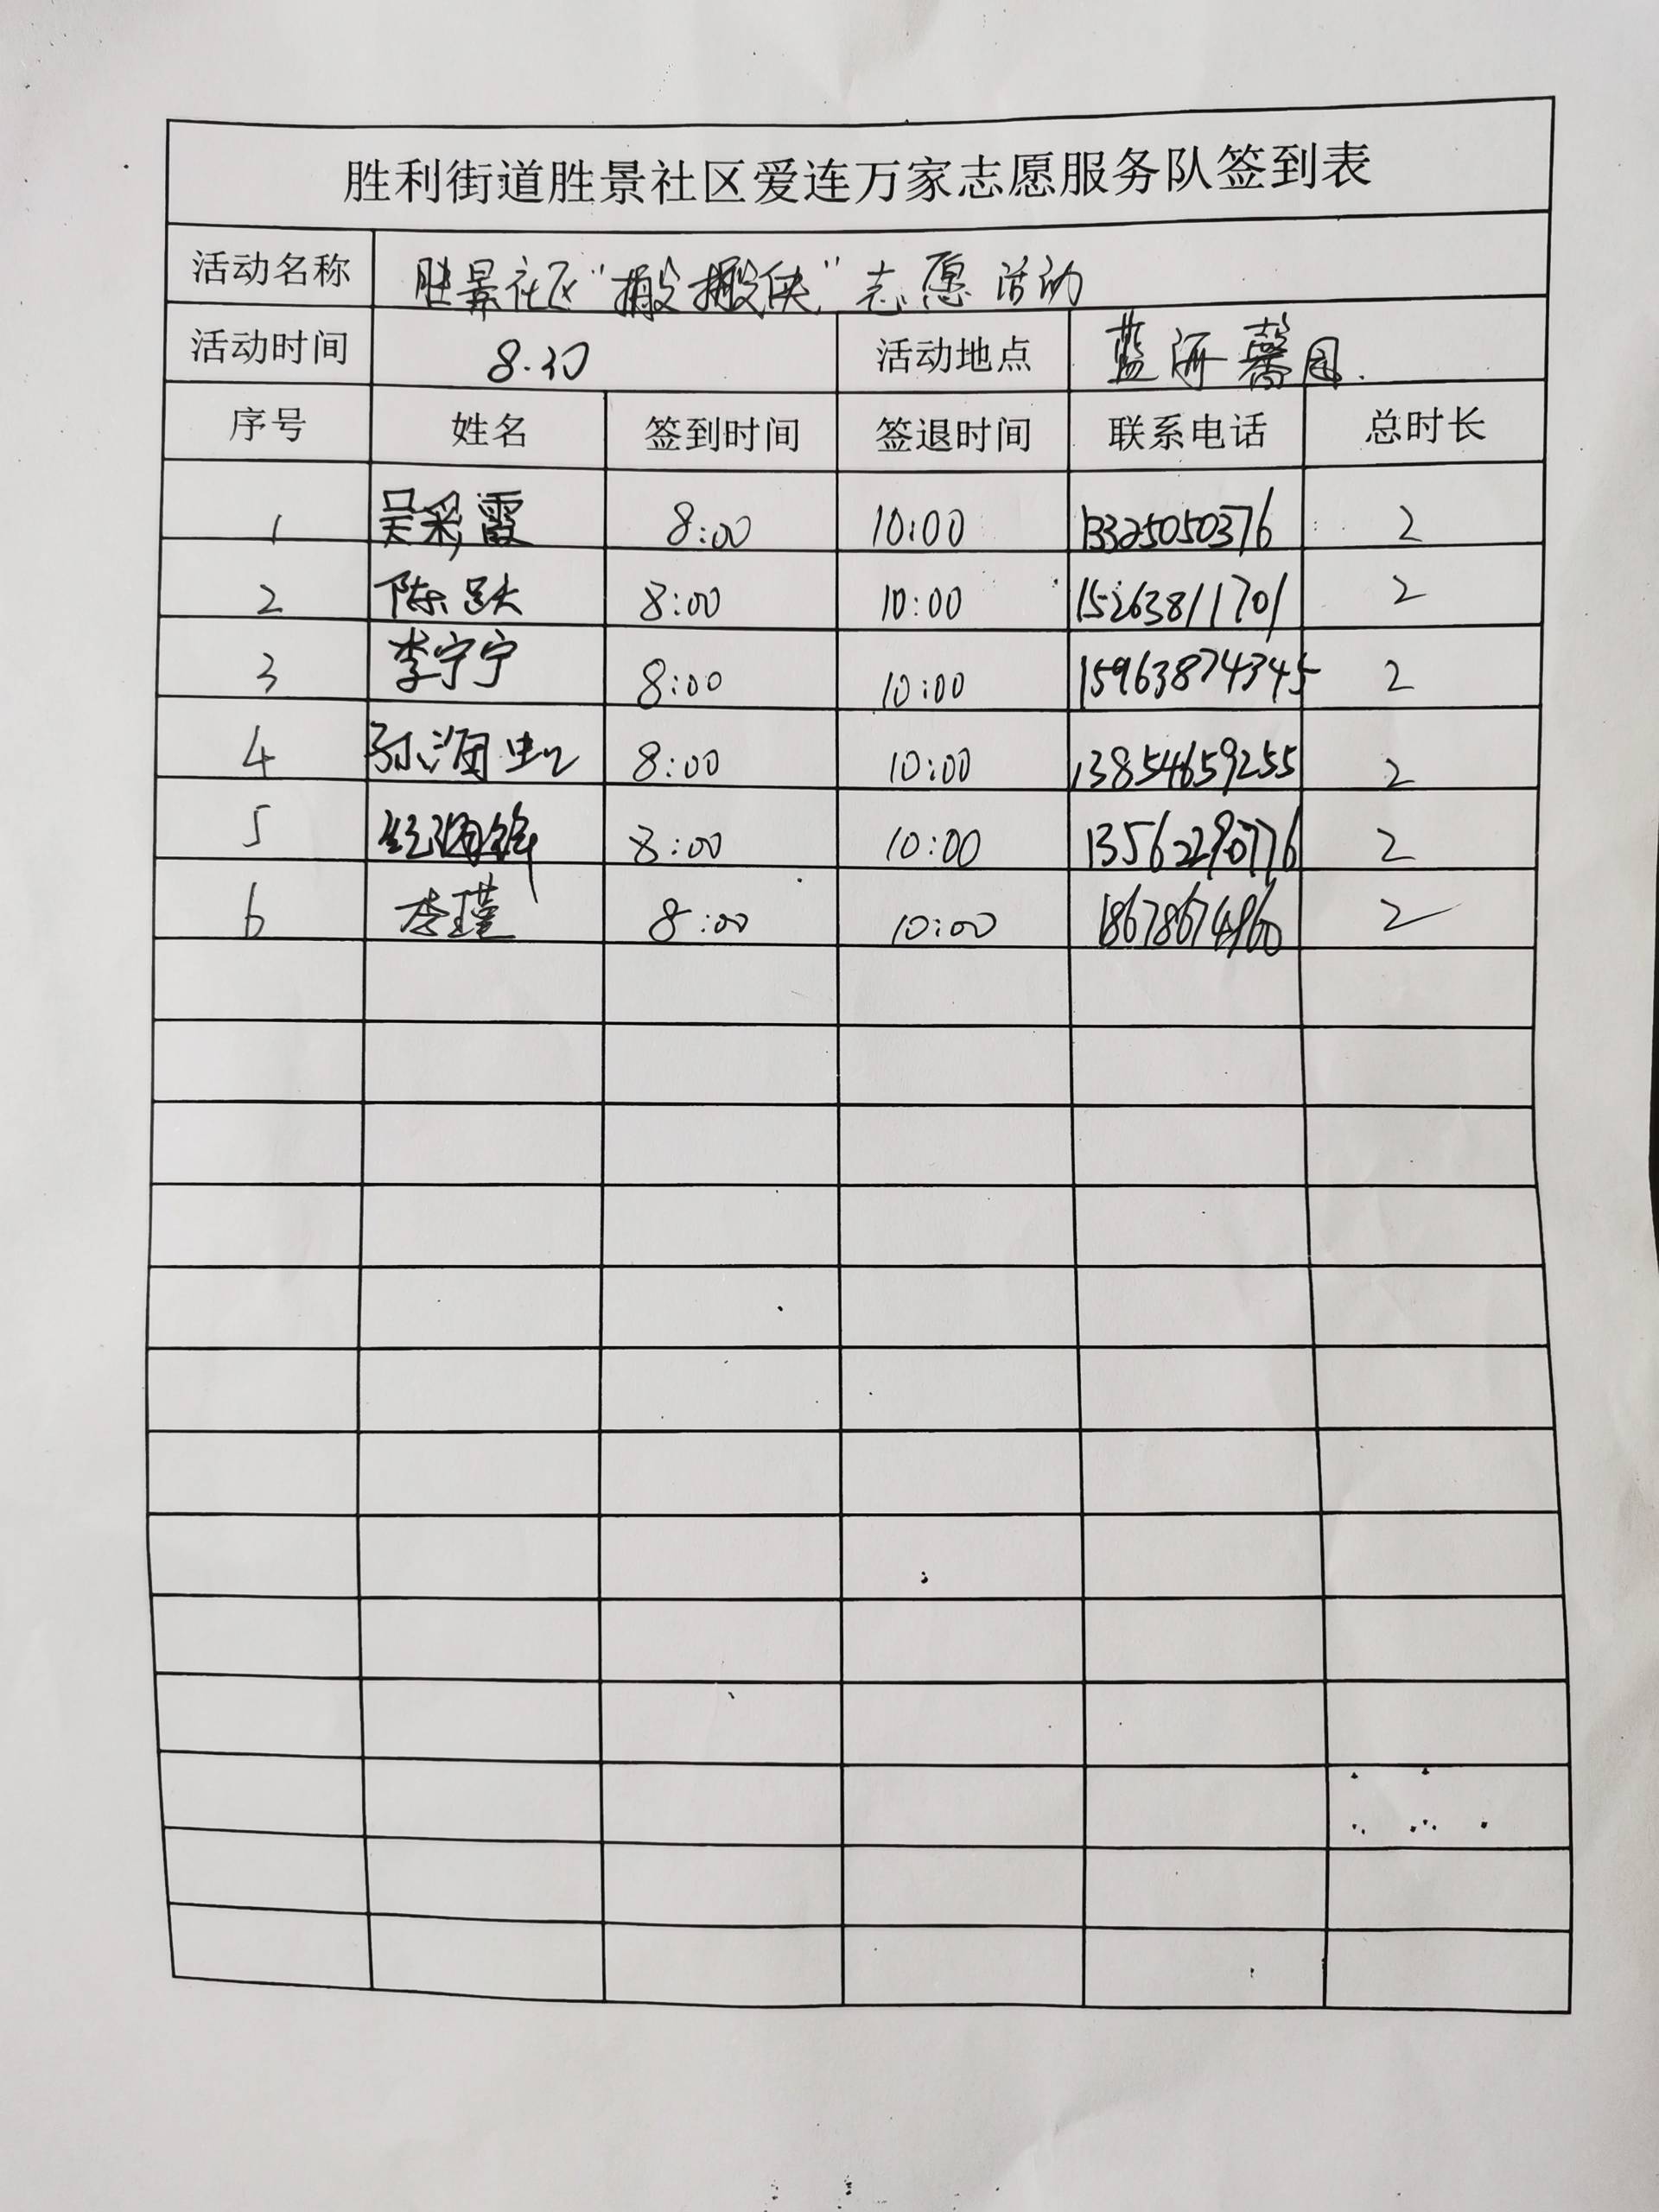 胜利街道胜景社区爱连万家志愿服务队签到表
活动名称 胜景社区“搬搬侠”志愿活动
活动时间 活动地点 蓝海馨园.
序号 姓名 签到时间 签退时间 联系电话 总时长
1 吴彩霞 8:00 10:00 13325050376 2
2 陈跃 8:00 10:00 15263811701 2
3 李宁宁 8:00 10:00 15963874345 2
4 孙海虹 8:00 10:00 13854659255 2
5 8:00 10:00 2
6 李瑾 8:00 10:00 2